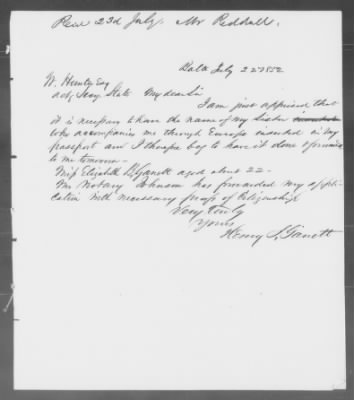 Recd 23d July. Mr Reddall.
Balto July 22d 1852
W. Hunter Esq
actg Secy State My dear Sir
I am just apprised that
it is necessary to have the name of my Sister
who accompanies me through Europe inserted in my
passport and I therefore beg to have it done & forwarded
to me tomorrow -
Miss Elizabeth B. Garrett aged about 22 -
Mr Notary Johnson has forwarded my appli-
cation with necessary proofs of Citizenship
Very truly
Yours
Henry S. Garrett